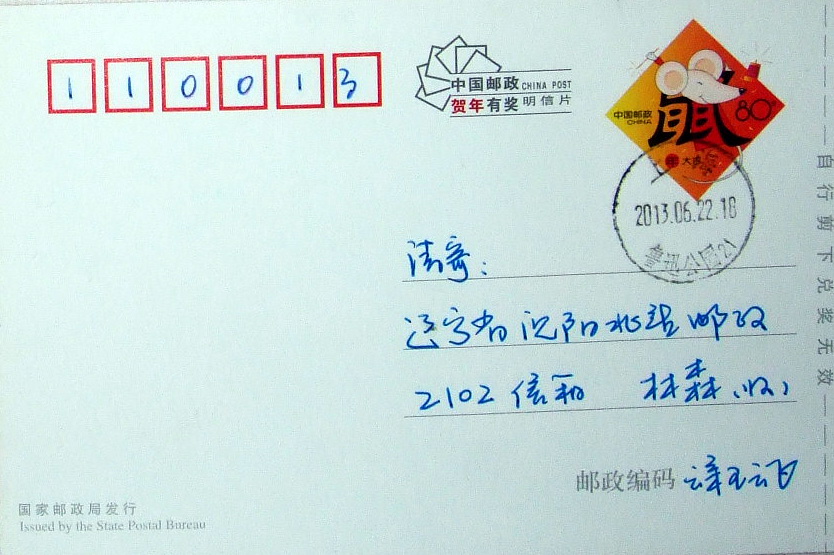 110013
中国邮政 CHINA POST
贺年有奖 明信片
中国邮政
CHINA
80分
鼠
2013.06.22.18
鲁迅公园21
请寄：
辽宁省沈阳北站邮政
2102信箱 林森(收)
邮政编码
国家邮政局发行
Issued by the State Postal Bureau
自行剪下兑奖无效